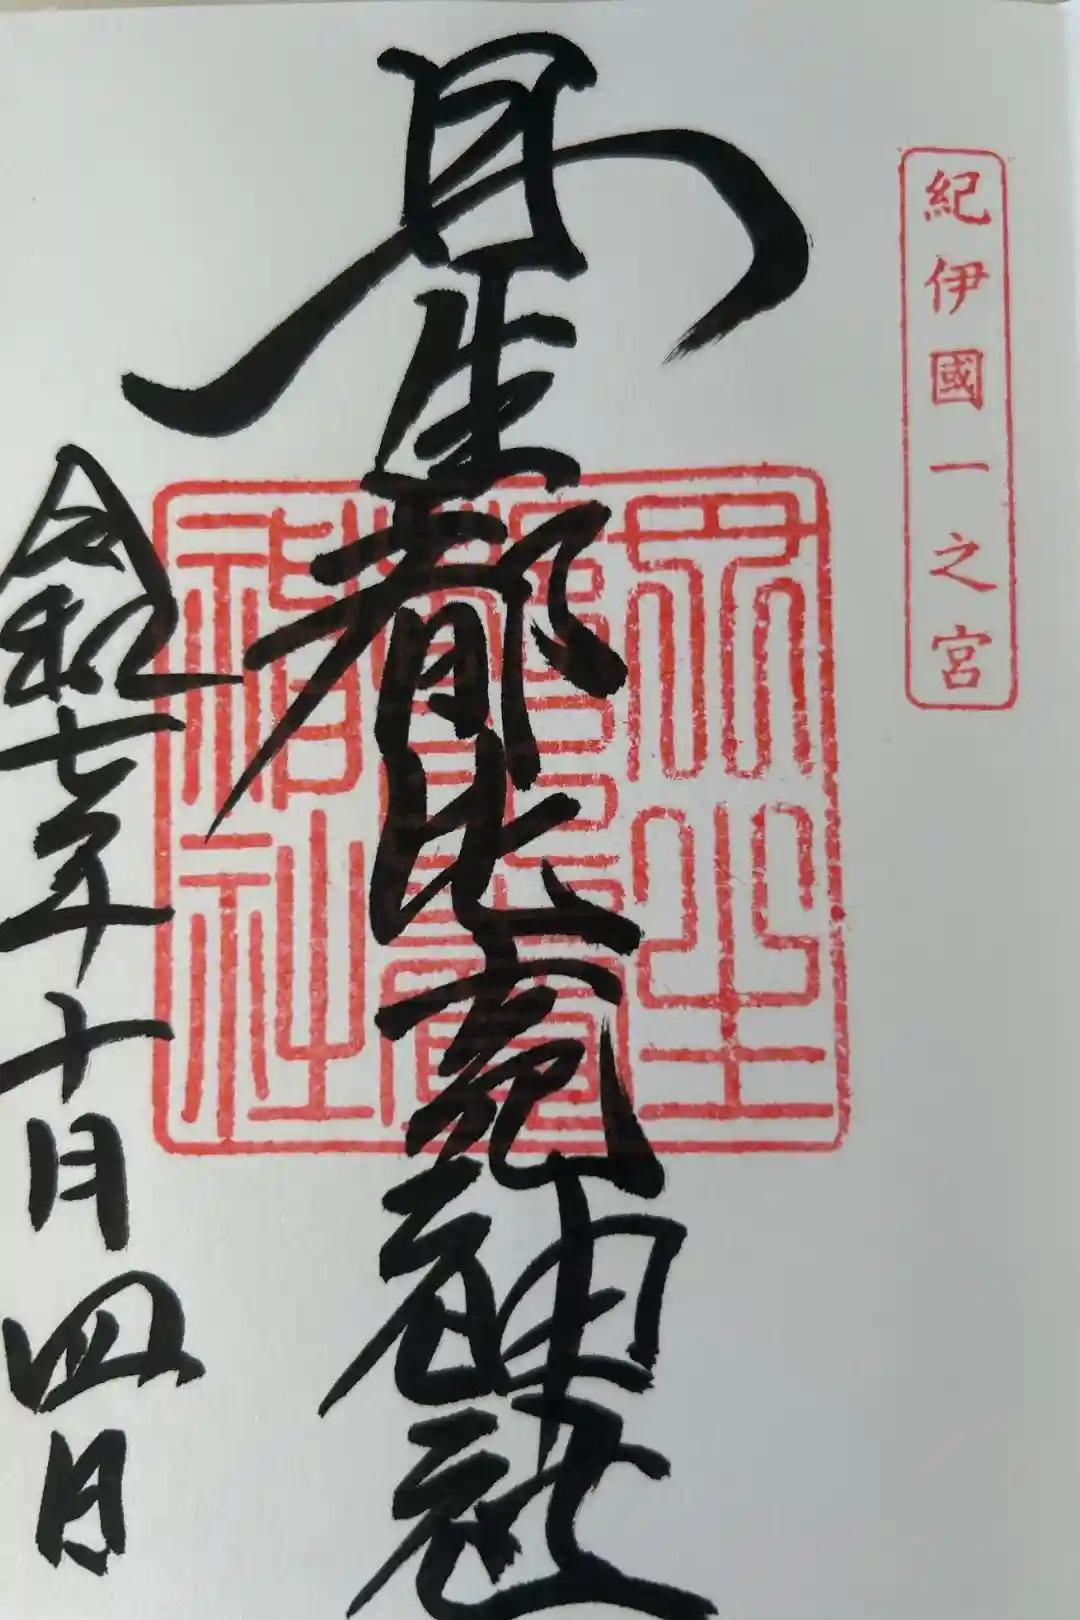 紀伊國一之宮
丹生都比売神社
丹生
都比賣
神社
令和七年十月四日